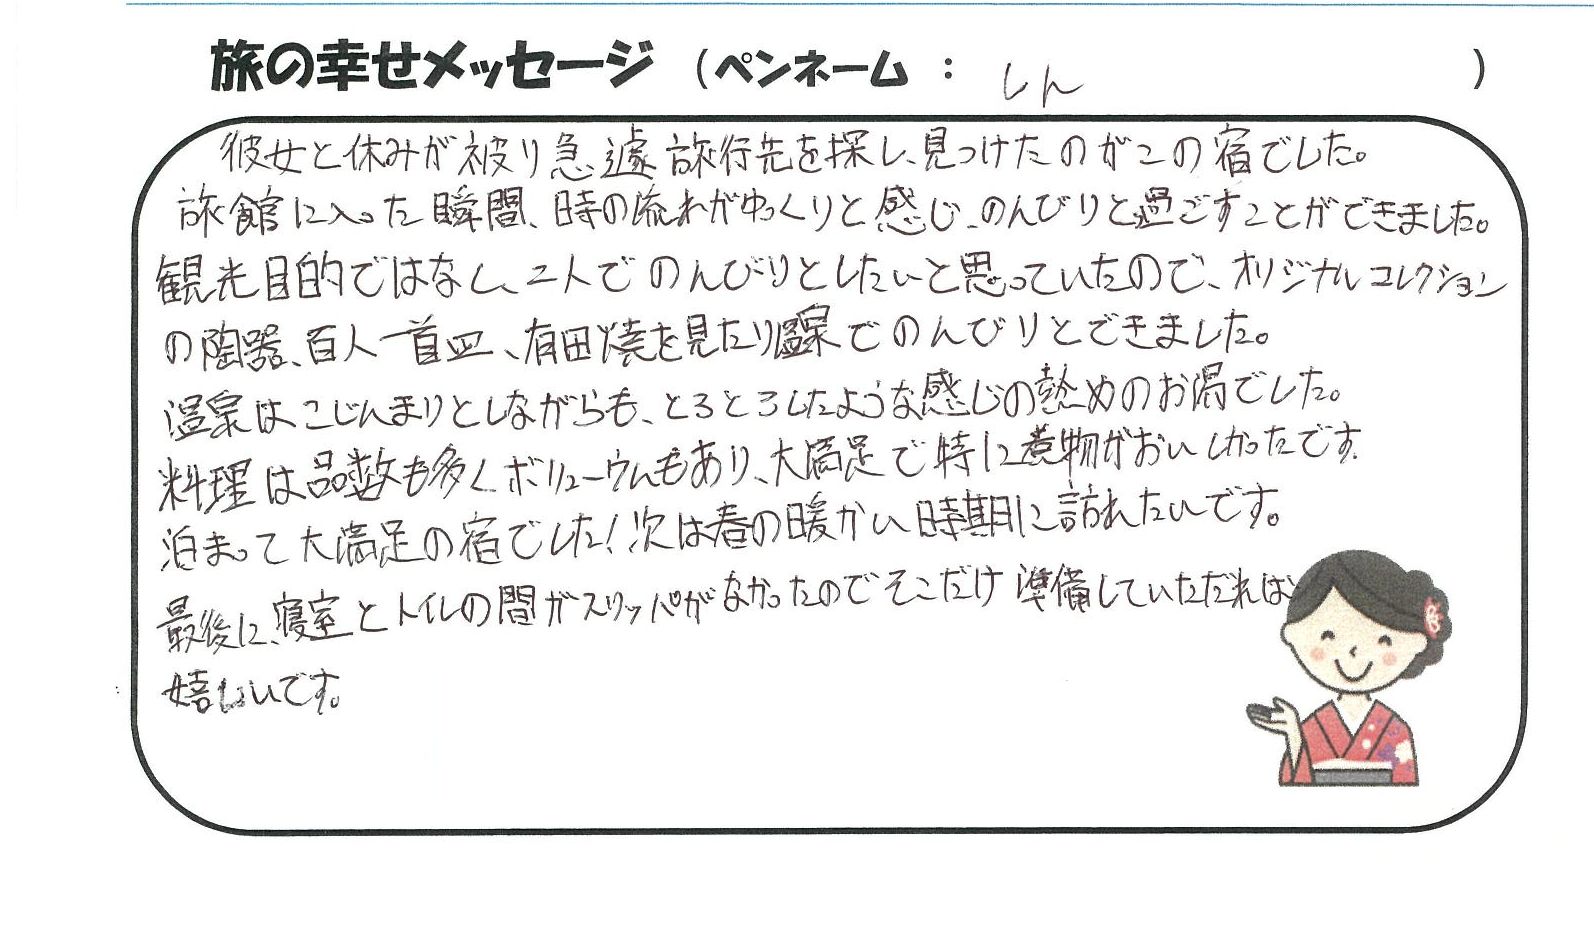 旅の幸せメッセージ (ペンネーム : しん )
彼女と休みが被り急遽旅行先を探し、見つけたのがこの宿でした。
旅館に入った瞬間、時の流れがゆっくりと感じ、のんびりと過ごすことができました。
観光目的ではなく、二人でのんびりとしたいと思っていたので、オリジナルコレクション
の陶器、百人一首皿、有田焼を見たり温泉でのんびりとできました。
温泉はこじんまりとしながらも、とろとろしたような感じの熱めのお湯でした。
料理は品数も多くボリュームもあり、大満足で特に煮物がおいしかったです。
泊まって大満足の宿でした!次は春の暖かい時期に訪れたいです。
最後に、寝室とトイレの間がスリッパがなかったのでそこだけ準備していただれば
嬉しいです。